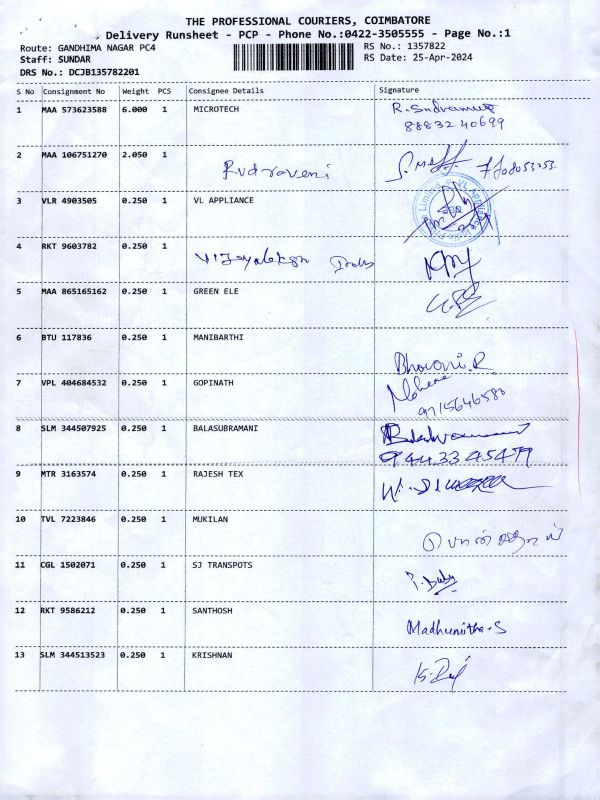 THE PROFESSIONAL COURIERS, COIMBATORE
Delivery Runsheet - PCP - Phone No.:0422-3505555 - Page No.:1
Route: GANDHIMA NAGAR PC4 RS No.: 1357822
Staff: SUNDAR RS Date: 25-Apr-2024
DRS No.: DCJB135782201
S No Consignment No Weight PCS Consignee Details Signature
1 MAA 573623588 6.000 1 MICROTECH
8883240699
2 MAA 106751270 2.050 1
Rudraveni
3 VLR 4903505 0.250 1 VL APPLIANCE
4 RKT 9603782 0.250 1
5 MAA 865165162 0.250 1 GREEN ELE
6 BTU 117836 0.250 1 MANIBARTHI
Bhavani.R
7 VPL 404684532 0.250 1 GOPINATH
9715646580
8 SLM 344507925 0.250 1 BALASUBRAMANI
9443345479
9 MTR 3163574 0.250 1 RAJESH TEX
10 TVL 7223846 0.250 1 MUKILAN
11 CGL 1502071 0.250 1 SJ TRANSPOTS
P. Baby
12 RKT 9586212 0.250 1 SANTHOSH
Madhumitha.S
13 SLM 344513523 0.250 1 KRISHNAN